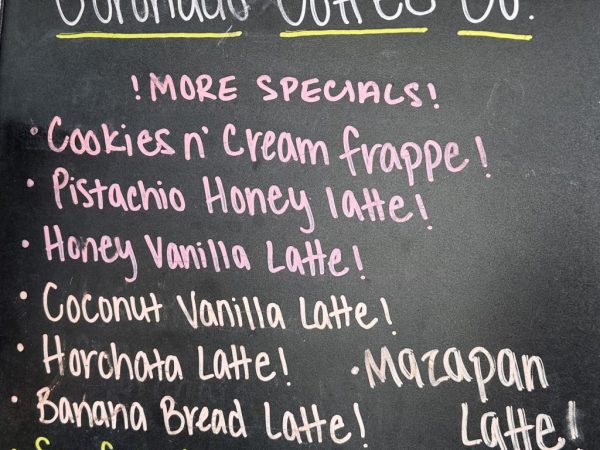 Coronado Coffee Co.
! MORE SPECIALS!
• Cookies n' Cream frappe!
• Pistachio Honey latte!
• Honey Vanilla Latte!
• Coconut Vanilla Latte!
• Horchata Latte!
• Banana Bread Latte!
• Mazapan
Latte!